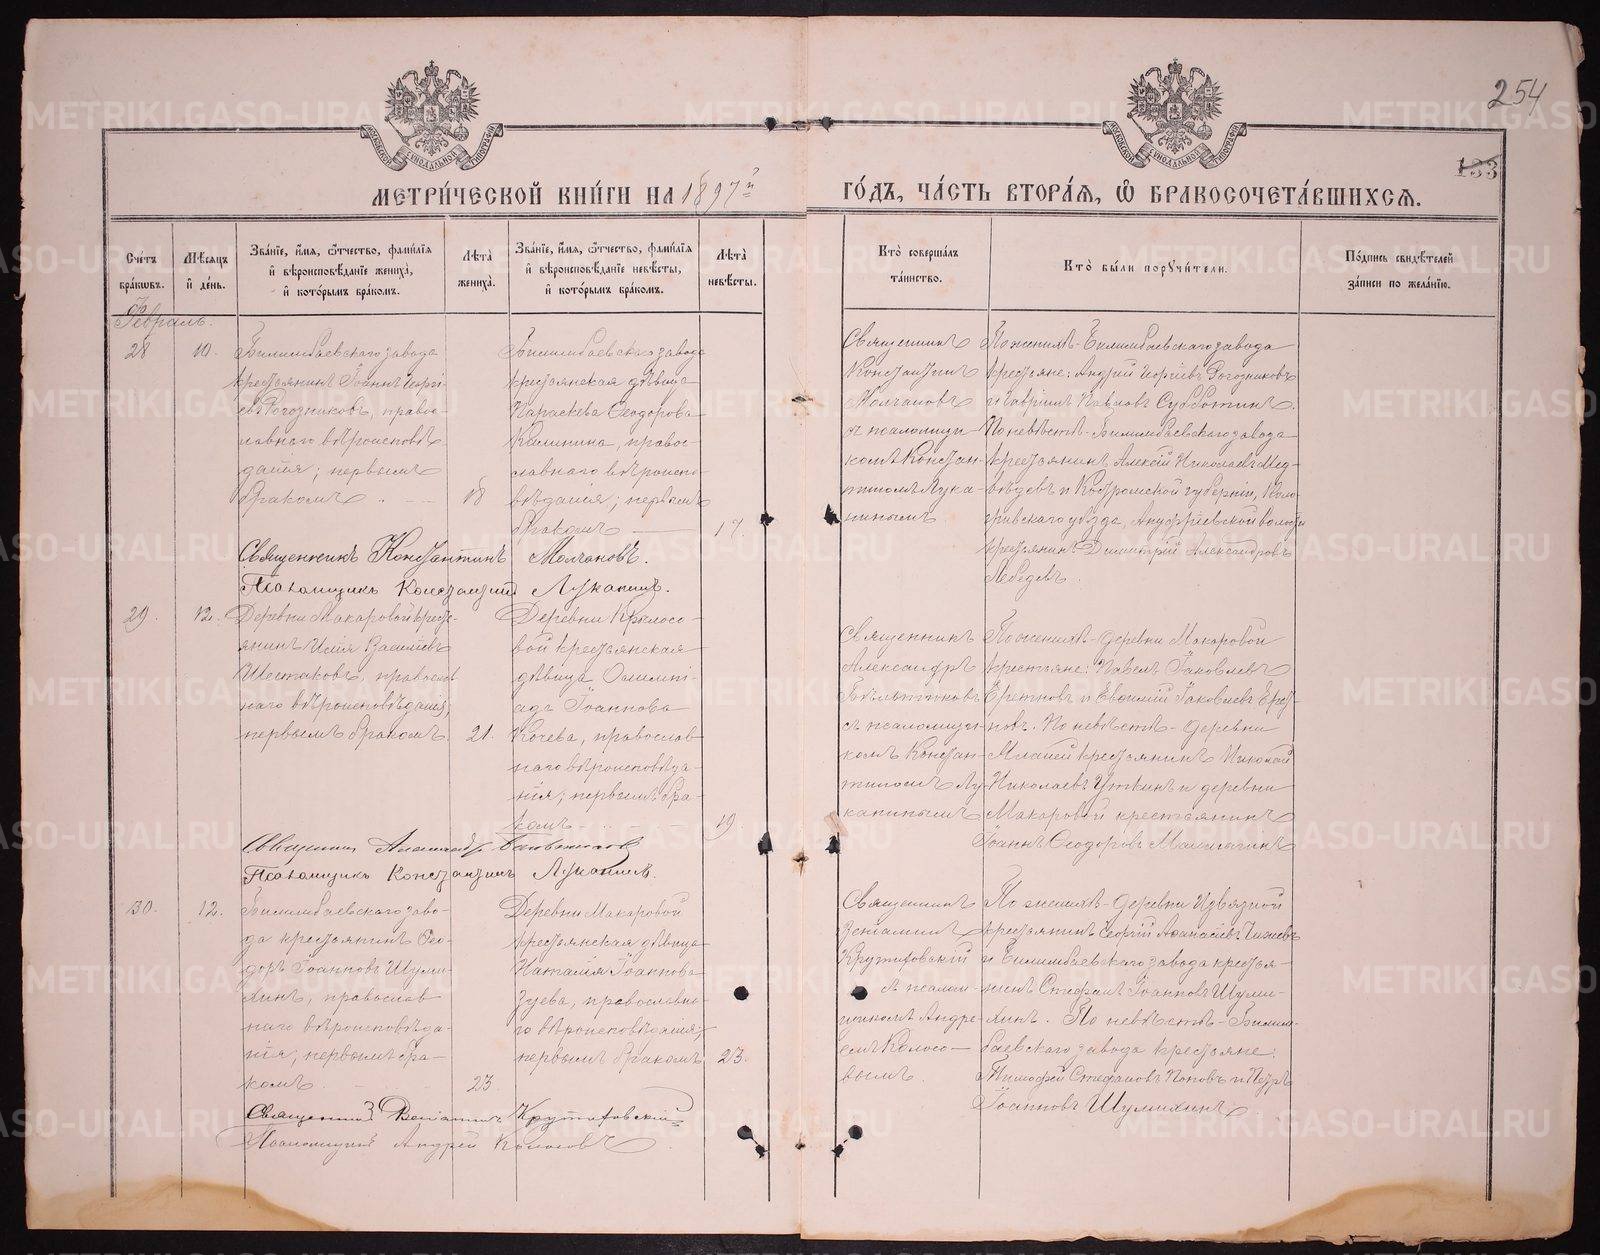 254
133
МОСКОВСКОЙ СѴНОДАЛЬНОЙ ТИПОГРАФІИ
МОСКОВСКОЙ СѴНОДАЛЬНОЙ ТИПОГРАФІИ
МЕТРИ́ЧЕСКОЙ КНИ́ГИ НА 1897й ГО́ДЪ, ЧА́СТЬ ВТОРА́Ѧ, Ѽ БРАКОСОЧЕТА́ВШИХСѦ.
Сче́тъ бра́кѡвъ.
Мѣ́сѧцъ и҆ де́нь.
Зва́нїе, и҆́мѧ, ѻ҆́тчество, фамѝлїѧ и҆ вѣроисповѣ́данїе жениха̀, и҆ кото́рымъ бра́комъ.
Лѣ́та жениха̀.
Зва́нїе, и҆́мѧ, ѻ҆́тчество, фамѝлїѧ и҆ вѣроисповѣ́данїе невѣ́сты, и҆ кото́рымъ бра́комъ.
Лѣ́та невѣ́сты.
Кто̀ соверша́лъ та́инство.
Кто̀ бы́ли порꙋчи́тели.
По́дпись свидѣ́телей за́писи по жела́нїю.
Февраль.
28
10.
Билимбаевскаго завода
крестьянинъ Іоаннъ Георгі-
евъ Рогозниковъ, правос-
лавнаго вѣроисповѣ
данія; первымъ
бракомъ
18
Билимбаевскаго завода
крестьянская дѣвица
Параскева Ѳеодорова
Калинина, правос-
лавнаго вѣроиспо-
вѣданія; первымъ
бракомъ
17.
Священникъ
Константинъ
Молчановъ
съ псаломщи
комъ Констан-
тиномъ Лука-
нинымъ
По женихѣ - Билимбаевскаго завода
крестьяне: Андрей Георгіевъ Рогозниковъ
и Гавріилъ Павловъ Субботинъ.
По невѣстѣ - Билимбаевскаго завода
крестьянинъ Алексій Николаевъ Мед-
вѣдевъ и Костромской губерніи, Коло-
гривскаго уѣзда, Ануфріевской волости
крестьянинъ Димитрій Александровъ
Лебедевъ.
Священникъ Константинъ Молчановъ.
Псаломщикъ Константинъ Луканинъ.
29.
12.
Деревни Макаровой кресть-
янинъ Илія Василіевъ
Шестаковъ, православ
наго вѣроисповѣданія;
первымъ бракомъ
21.
Деревни Крылосо-
вой крестьянская
дѣвица Олимпі-
ада Іоаннова
Кочева, православ
наго вѣроисповѣда-
нія; первымъ бра-
комъ
19.
Священникъ
Александръ
Бѣльтюковъ
съ псаломщи-
комъ Констан-
тиномъ Лу-
канинымъ
По женихѣ - деревни Макаровой
крестьяне: Павелъ Іаковлевъ
и Евѳимій Іаковлевъ
По невѣстѣ - деревни
крестьянинъ Николай
Николаевъ Уткинъ и деревни
Макаровой крестьянинъ
Іоаннъ Ѳеодоровъ
Священникъ Александръ Бѣльтюковъ
Псаломщикъ Константинъ Луканинъ.
30.
12.
Билимбаевскаго заво-
да крестьянинъ Ѳео-
доръ Іоанновъ Шуми-
хинъ, православ
наго вѣроисповѣда-
нія, первымъ бра-
комъ
23
Деревни Макаровой
крестьянская дѣвица
Наталія Іоаннова
Зуева, православна-
го вѣроисповѣданія;
первымъ бракомъ
23.
Священникъ
Веніаминъ
Крутиховскій
съ псалом-
щикомъ Андре-
емъ Колосо-
вымъ.
По женихѣ - деревни Извязной
крестьянинъ Георгій Аѳанасіевъ
и Билимбаевскаго завода крестья-
нинъ Стефанъ Іоанновъ Шуми-
хинъ. По невѣстѣ - Билим-
баевскаго завода крестьяне:
Тимофей Стефановъ Поповъ и Петръ
Іоанновъ Шумихинъ.
Священникъ Веніаминъ Крутиховскій
Псаломщикъ Андрей Колосовъ
METRIKI.GASO-URAL.RU